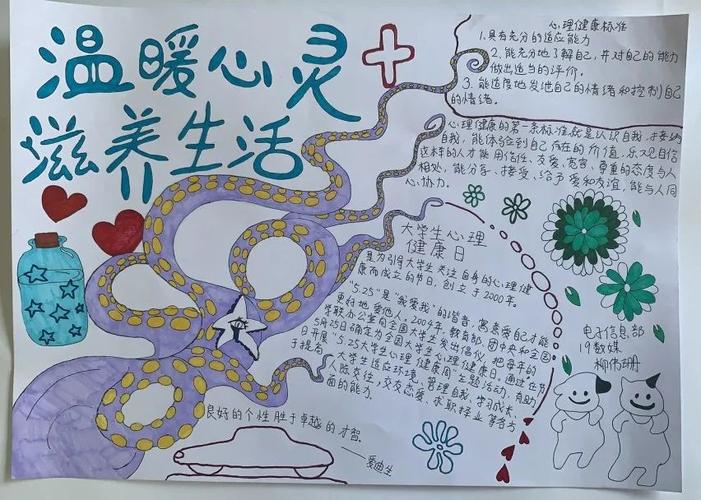 温暖心灵
滋养生活
心理健康标准
1.具有充分的适应能力
2.能充分地了解自己,并对自己的能力
做出适当的评价。
3.能适度地发泄自己的情绪和控制自己
的情绪。
心理健康的第一条标准就是认识自我,接纳
自我,能体验到自己存在的价值,乐观自信
这样的人才能用信任、友爱、宽容、尊重的态度与人
相处,能分享、接受、给予爱和友谊,能与人同
心协力。
大学生心理
健康日
是为引导大学生关注自身的心理健
康而成立的节日,创立于2000年。
"5.25"是"我爱我"的谐音,寓意爱自己才能
更好地爱他人。2004年,教育部、团中央和全国
学联办公室向全国大学生发出倡议,把每年的
5月25日确定为全国大学生心理健康日。
日开展"5.25大学生心理健康周"主题活动,
于提高大学生适应环境、管理自我、学习成长、
人际交往,交友恋爱、求职择业等各方
面的能力。
良好的个性胜于卓越的才智。
——爱迪生
电子信息部
19数媒
柳伟珊